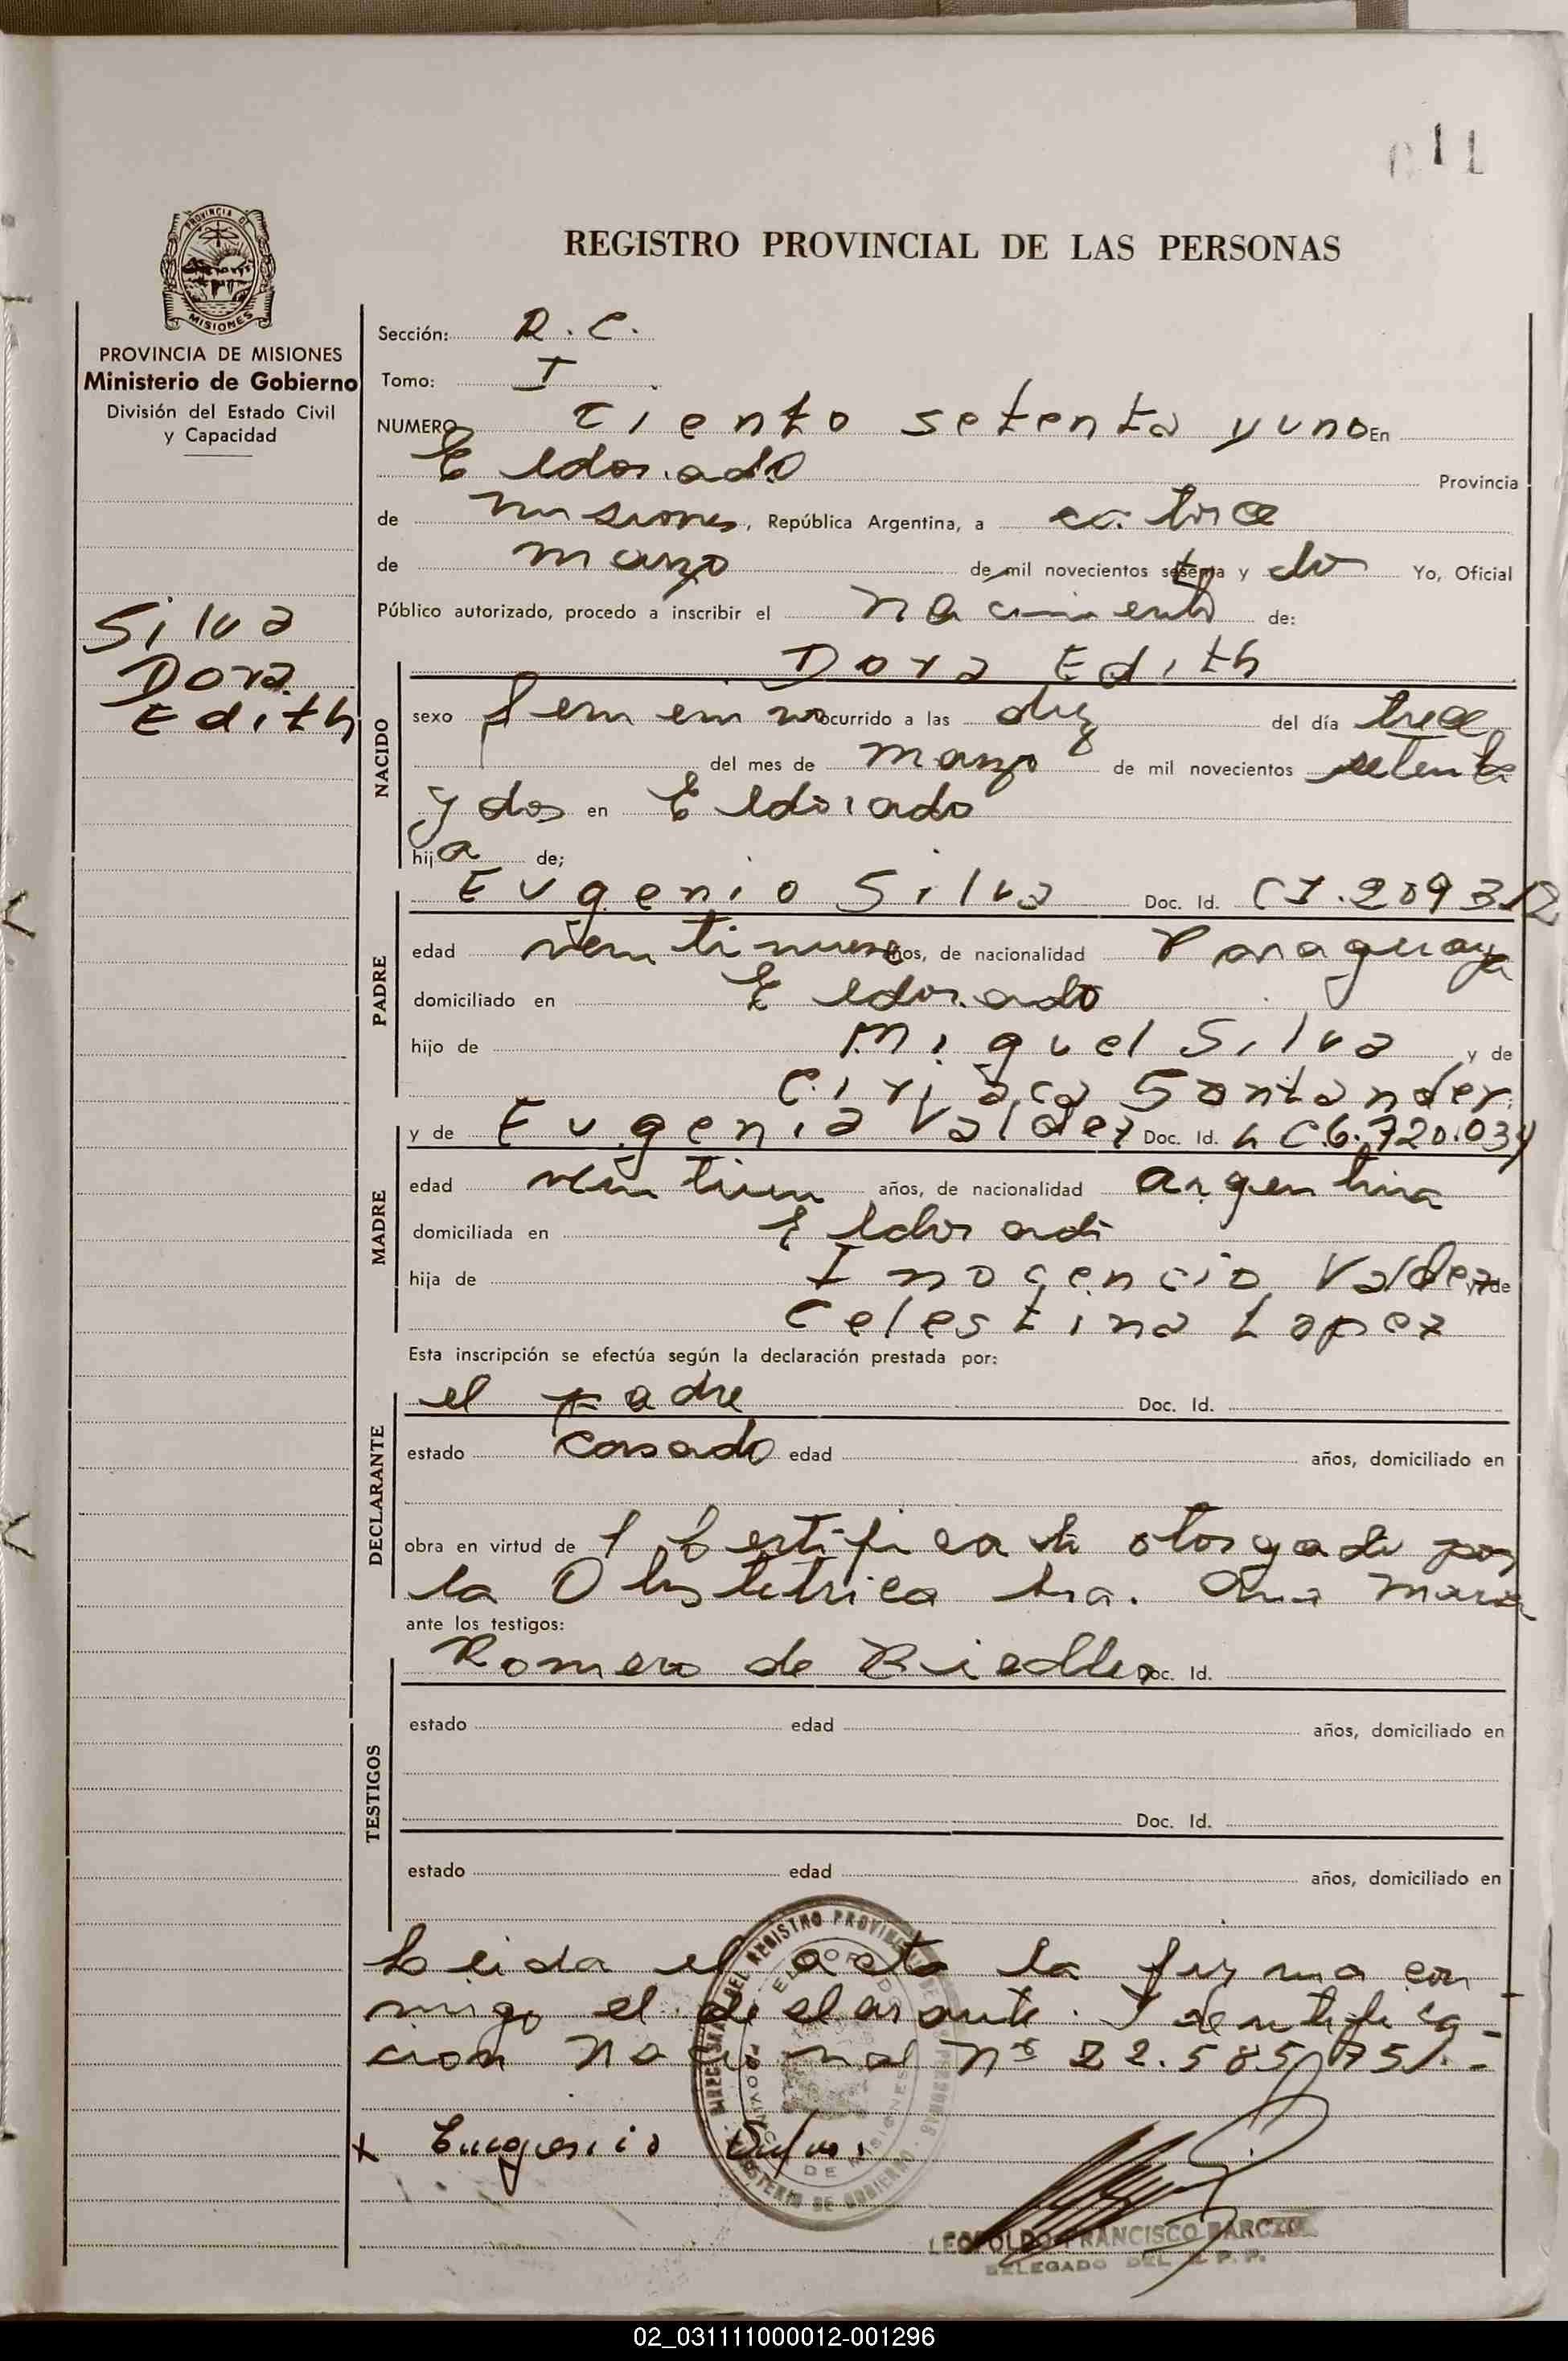 011
REGISTRO PROVINCIAL DE LAS PERSONAS
PROVINCIA DE
MISIONES
PROVINCIA DE MISIONES
Ministerio de Gobierno
División del Estado Civil
y Capacidad
Silva
Dora
Edith
Sección: R. C.
Tomo: I
NUMERO ciento setenta y uno En
Eldorado Provincia
de misiones, República Argentina, a catorce
de marzo de mil novecientos setenta y dos Yo, Oficial
Público autorizado, procedo a inscribir el nacimiento de:
Dora Edith
NACIDO
sexo femenino ocurrido a las diez del día trece
del mes de marzo de mil novecientos setenta
y dos en Eldorado
hija de;
Eugenio Silva Doc. Id. CI. 209312
PADRE
edad veintinueve años, de nacionalidad Paraguaya
domiciliado en Eldorado
hijo de Miguel Silva y de
Ciriaca Santander
y de Eugenia Valdez Doc. Id. L C 6.720.034
MADRE
edad veintiun años, de nacionalidad argentina
domiciliada en Eldorado
hija de Inocencio Valdez y de
Celestina Lopez
Esta inscripción se efectúa según la declaración prestada por:
el padre Doc. Id.
DECLARANTE
estado casado edad años, domiciliado en
obra en virtud de 1 Certificado otorgado por
la Obstetrica Sra. Ana Maria
ante los testigos:
Romero de Riedler Doc. Id.
TESTIGOS
estado edad años, domiciliado en
Doc. Id.
estado edad años, domiciliado en
Leida el acta la firma con
migo el declarante. Identifica-
cion Nacional Nº 22.585.751.-
x Eugenio Silva
DEL REGISTRO PROVINCIAL DE LAS PERSONAS
MINISTERIO DE GOBIERNO
ELDORADO
PROVINCIA DE MISIONES
LEOPOLDO FRANCISCO
DELEGADO DEL R. P. P.
02_031111000012-001296